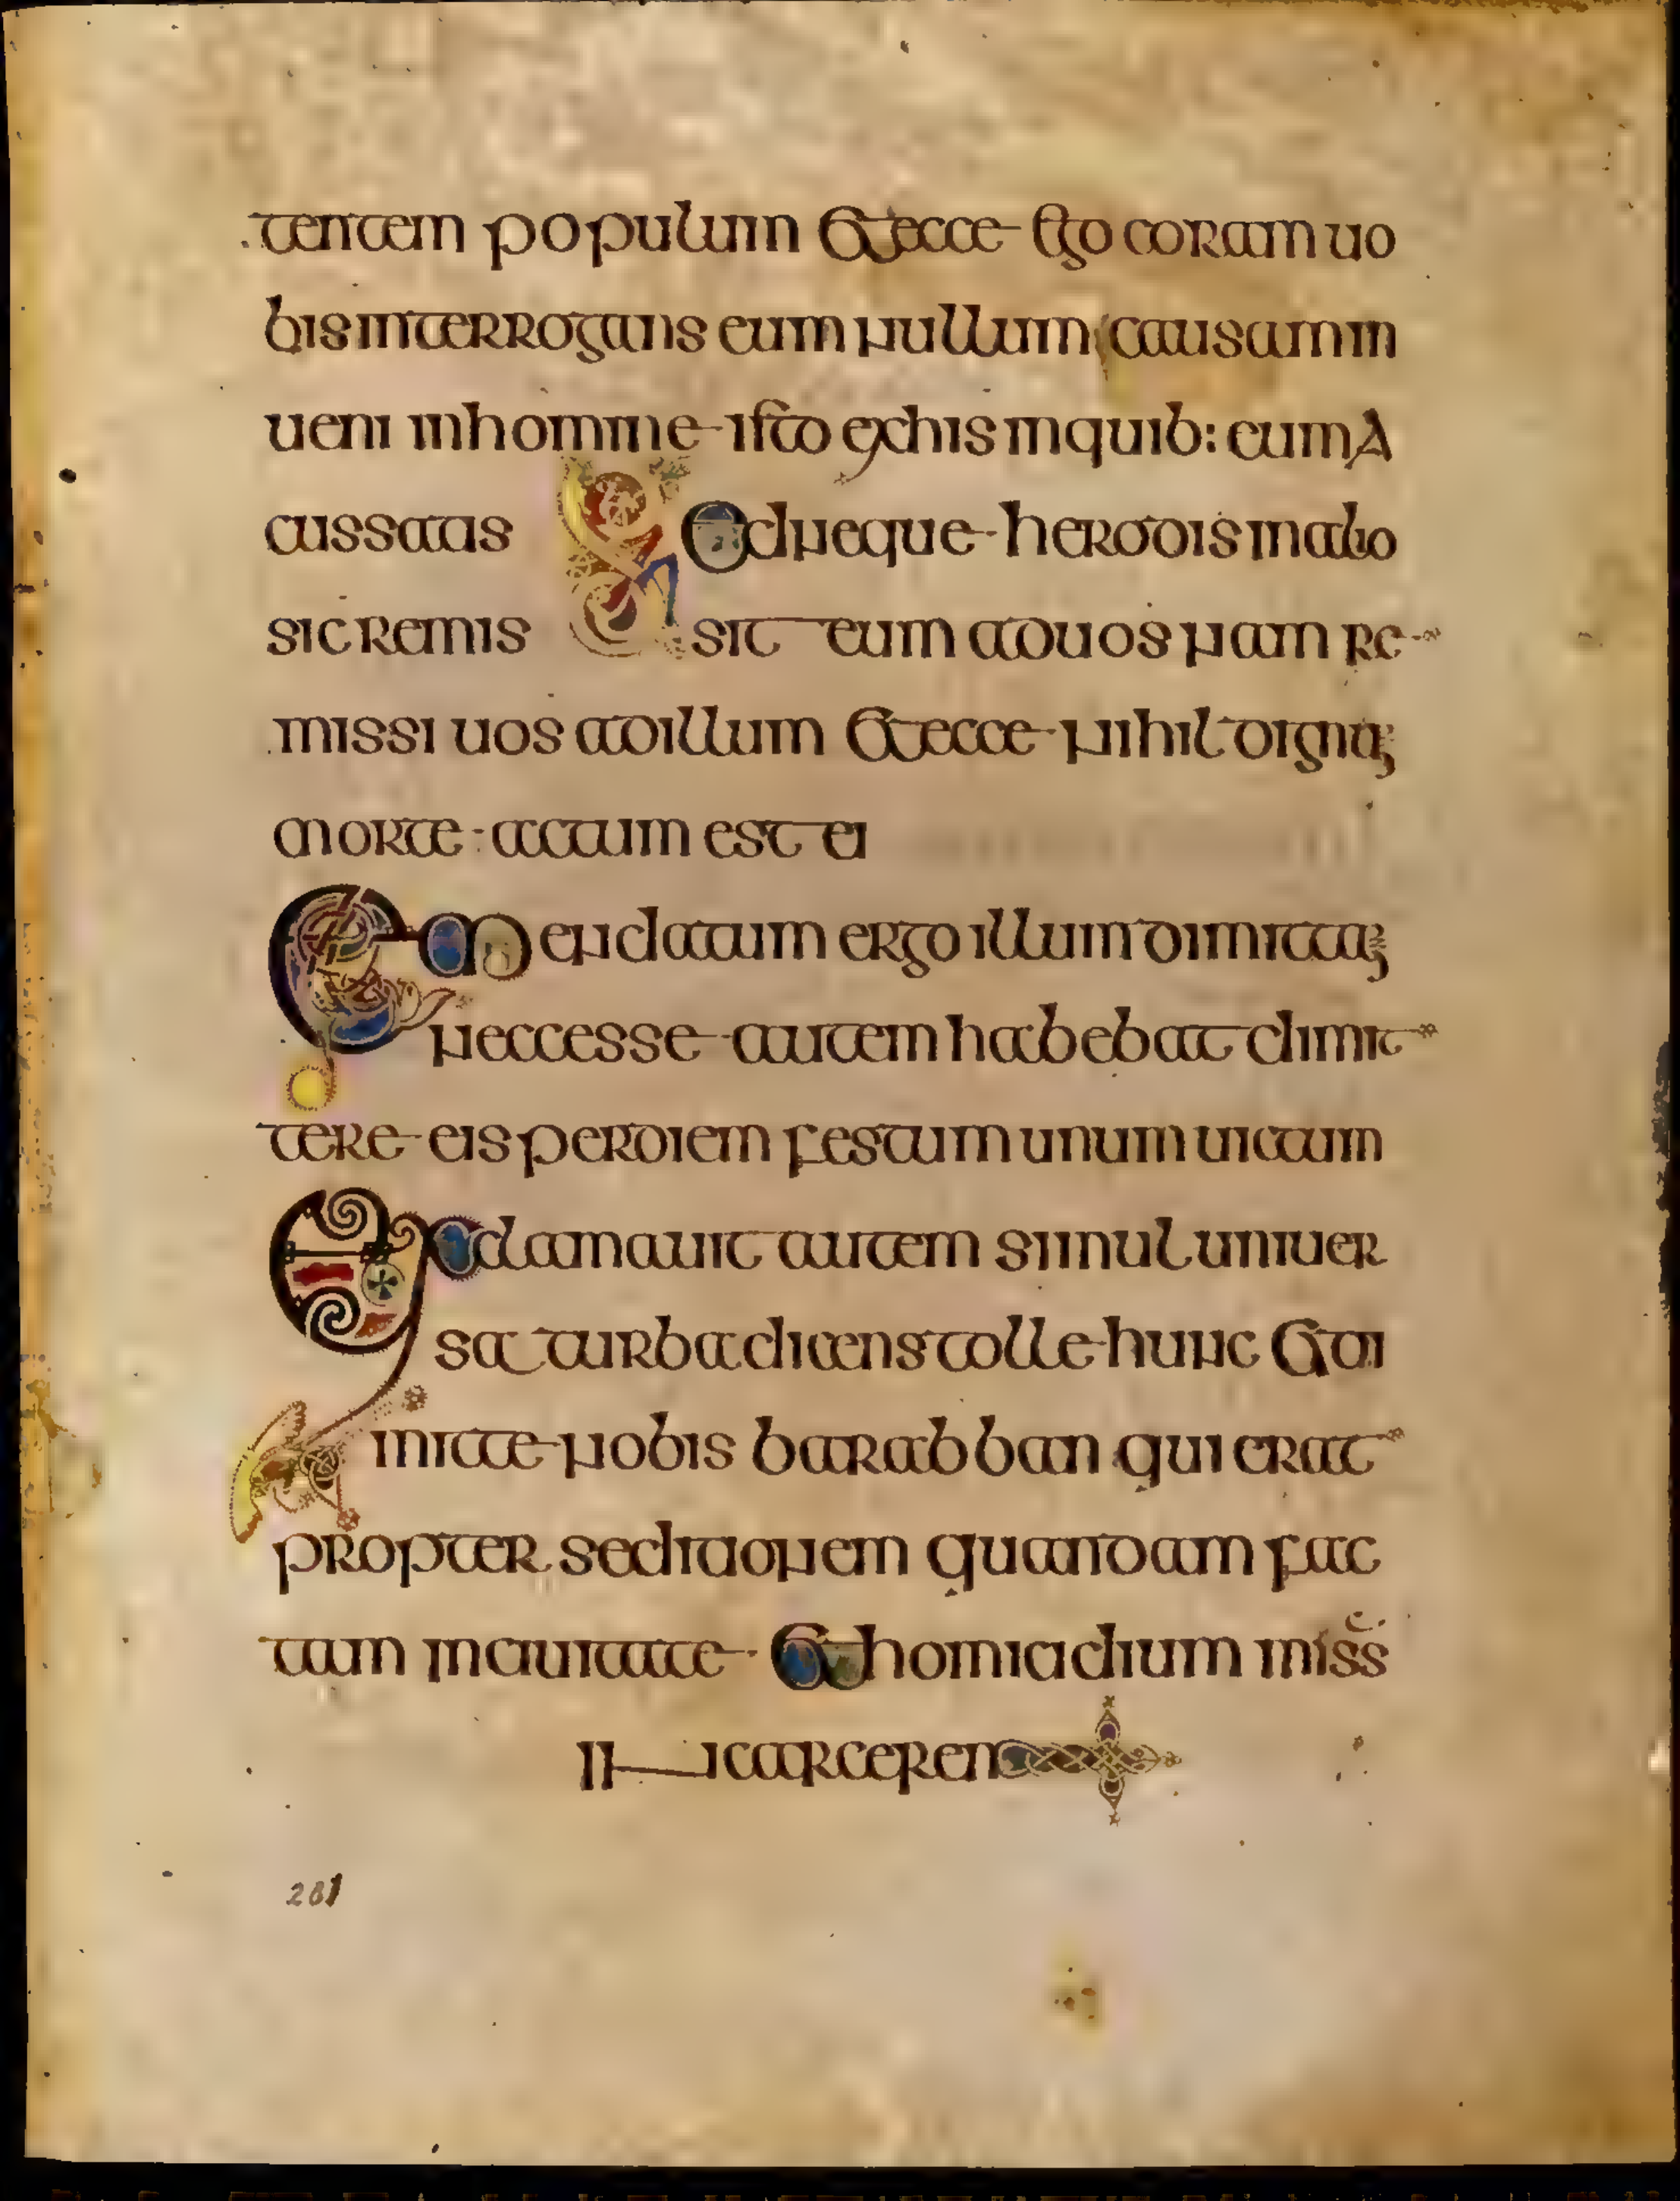 tentem populum et ecce ego coram uo
bis interrogans eum nullum causam in
ueni in homine isto ex his in quib: eum a
cussatis
Sed neque herodis in alio
sic remis sit eum ad uos nam re
missi uos ad illum et ecce nihil dignu
morte actum est ei
Emendatum ergo illum dimitta
neccesse autem habebat dimit
tere eis per diem festum unum uictum
Exclamauit autem simul uniuer
sa turba dicens tolle hunc et di
mitte nobis barabban qui erat
propter seditionem quandam fac
tam in ciuitate et homicidium miss
in carcerem
201